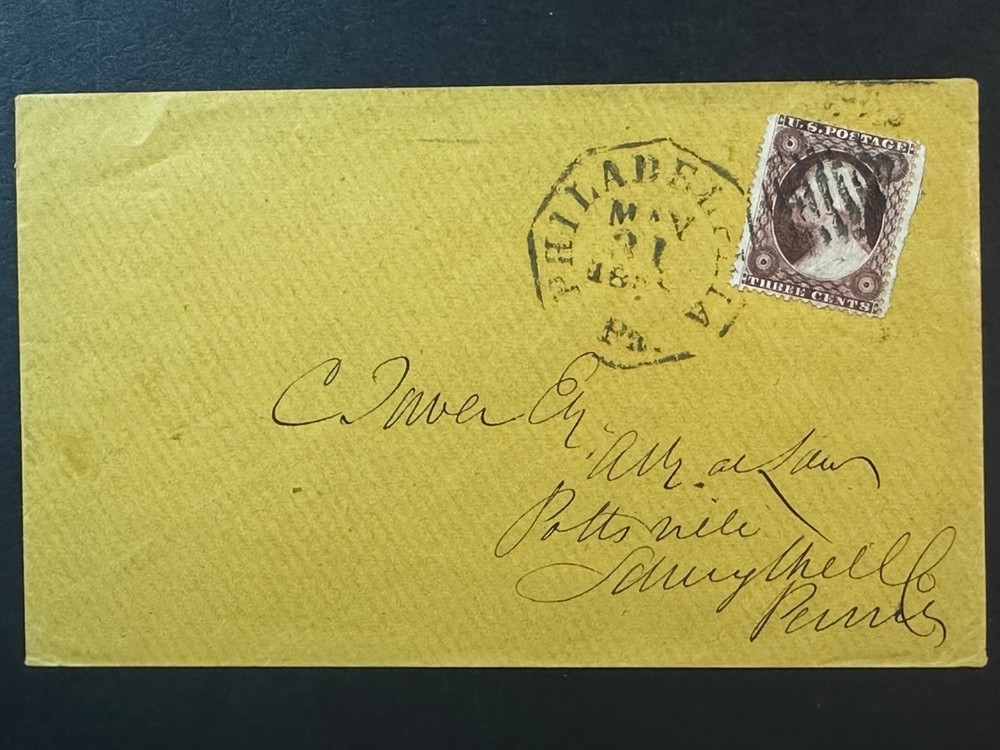 PHILADELPHIA
MAY
21
Pa.
U.S. POSTAGE
THREE CENTS
C. Tower Esq.
Atty. at Law
Pottsville
Schuylkill Co
Penna